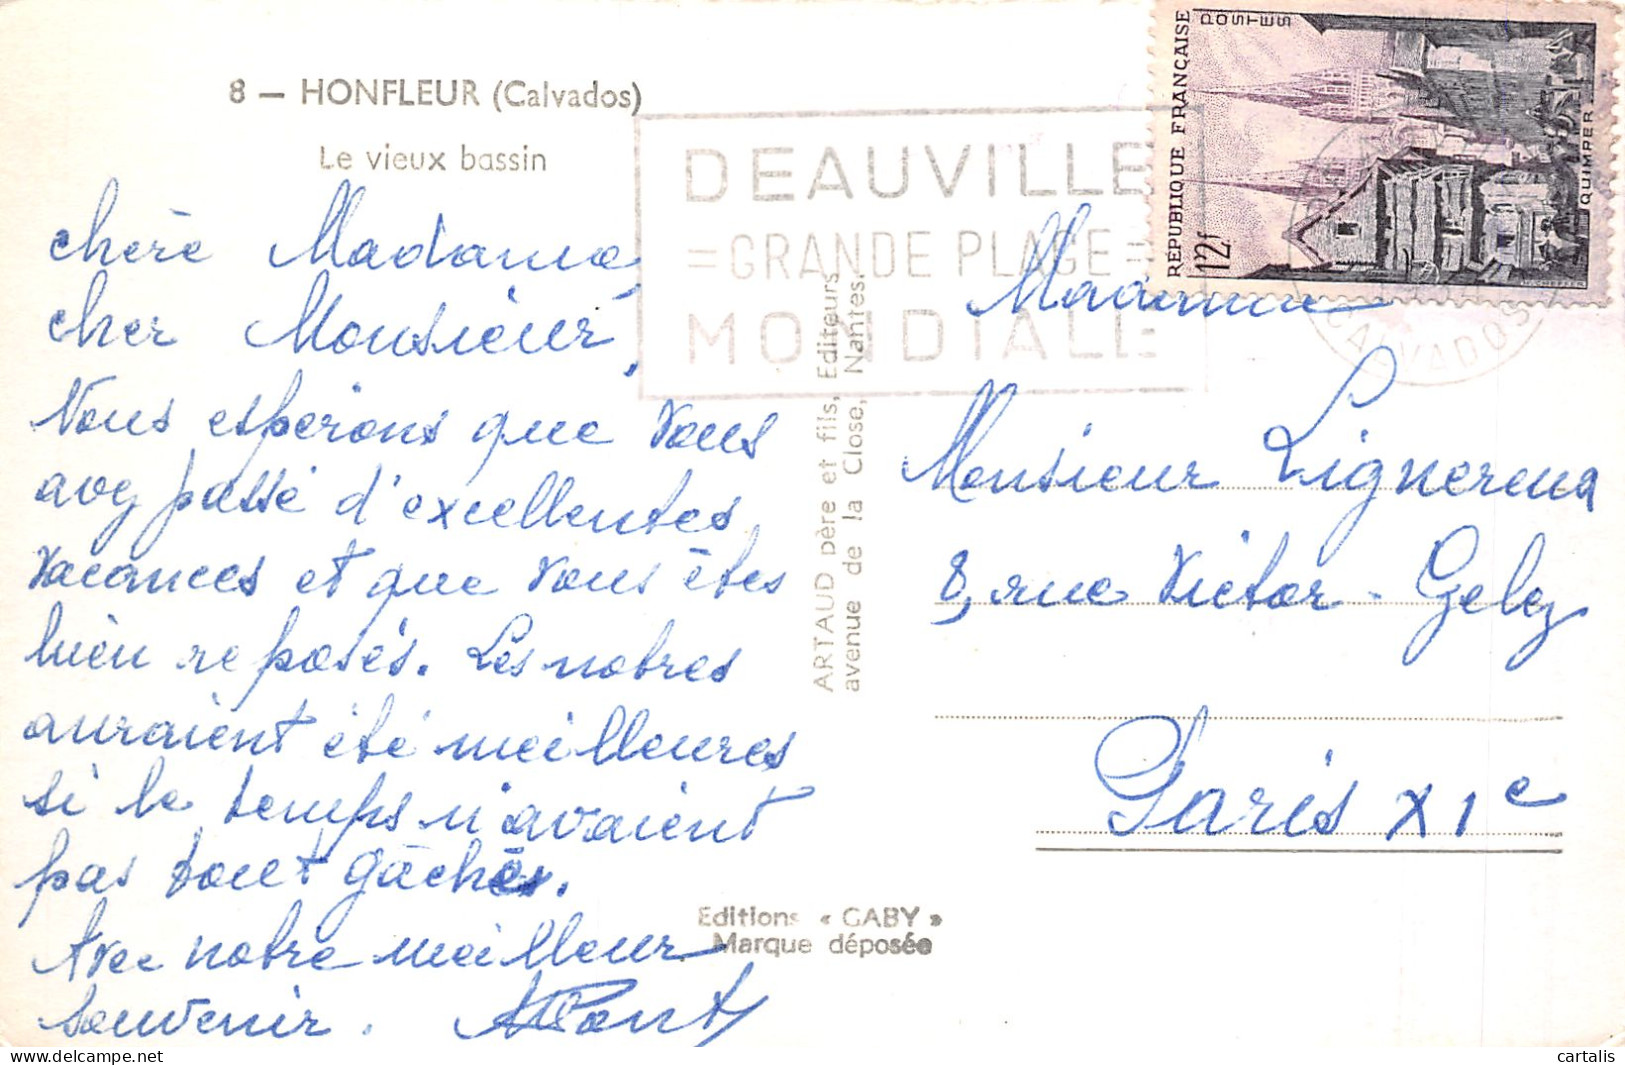 8 — HONFLEUR (Calvados)
Le vieux bassin
chère Madame,
cher Monsieur,
Nous espérons que vous
avez passé d'excellentes
vacances et que vous êtes
bien reposés. Les notres
auraient été meilleures
si le temps n'avaient
pas tout gâchés.
Avec notre meilleur
souvenir.
DEAUVILLE
=GRANDE PLAGE=
MONDIALE
REPUBLIQUE FRANÇAISE
POSTES
12f
QUIMPER
CALVADOS
ARTAUD père et fils, Editeurs
avenue de la Close, Nantes.
Madame
Monsieur
8, rue Victor-Gelez
Paris XIe
Editions « GABY »
Marque déposée
cartalis